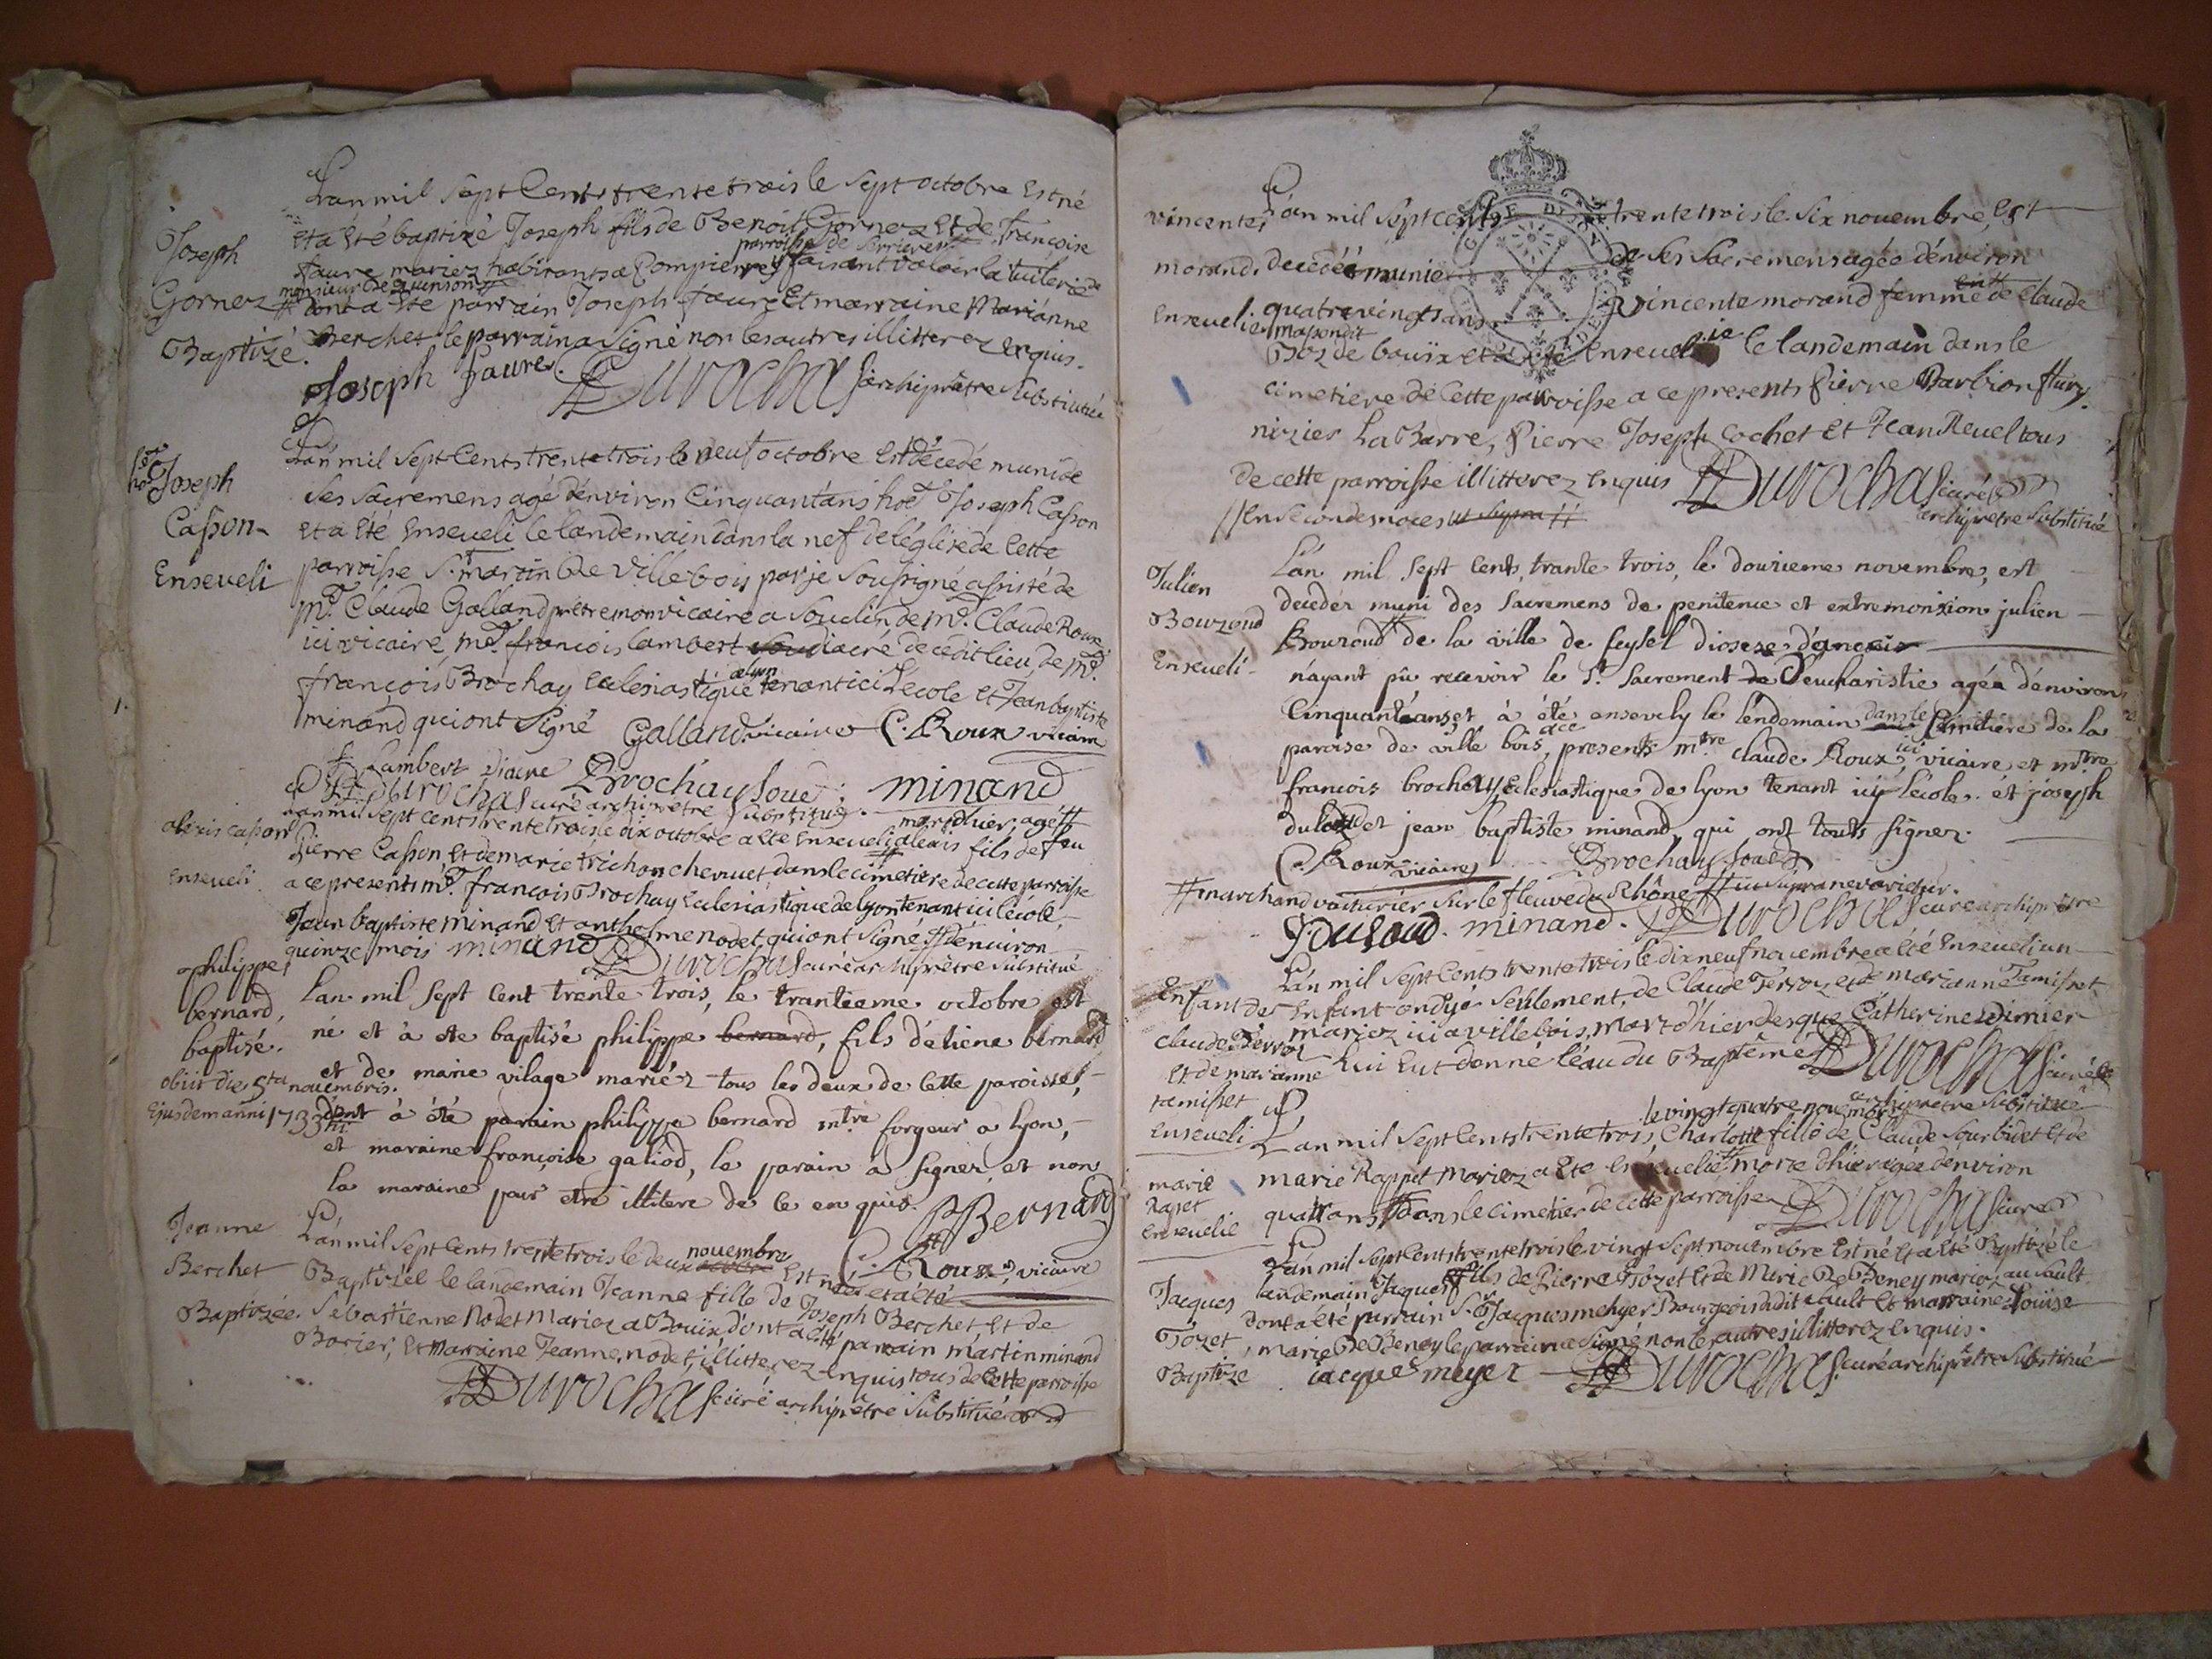 L'an mil Sept Cents trente trois le Sept octobre Est né
Joseph
Gornez
Baptizé.
Et a Eté baptizé Joseph fils de Benoit Gornez Et de Françoise
parroisse de Serrieres
faure mariez habitants a Pompierre y faisant valoir la tuilerie de
monsieur De quinson
dont a Eté parrain Joseph faure Et marraine Marianne
Berchet le parrain a Signé non les autres illitterez Enquis.
Joseph Faure. Durochas archiprêtre Substitué
hoe. Joseph
Casson
Enseveli
L'an mil Sept Cents trente trois le neuf octobre Est Décédé muni de
Ses Sacremens agé d'environ Cinquant'ans hoe. Joseph Casson
Et a Eté Enseveli le landemain dans la nef de l'église de Cette
parroisse St. martin De Villebois par je Soussigné assisté de
mre. Claude Galland prêtre mon vicaire a Souclin, de mre. Claude Roux
ici vicaire mre. francois Lambert diacre de cedit lieu, de mre.
françois Brochay Eclesiastique a lyon tenant ici L'ecole Et Jean baptiste
minand qui ont Signé Galland vicaire C. Roux vicaire
f Lambert diacre Brochay Soue. minand
Durochas curé archiprêtre Substitué.
alexis casson
Enseveli
L'an mil Sept cents trente trois le dix octobre a eté Enseveli alexis mort d'hier, agé # fils de feu
Pierre Casson Et de marie trichon chervuet dans le cimetiere de cette parroisse
a ce presents mre. francois Brochay Eclesiastique de lyon tenant ici l'école
Jean baptiste Minand Et anthelme nodet qui ont Signé # d'environ
quinze mois minand Durochas curé archiprêtre Substitué
philippe
bernard,
baptisé.
obiit die 5ta novembris.
Ejusdem anni 1733
Lan mil Sept Cent trente trois, le trantieme octobre est
né et à ete baptisé philippe bernard, fils d'étiene bernard
et de marie vilage mariéz tous les deux de Cette paroisse,
dont à été parain philippe bernard mtre forgeur a lyon,
et maraine françoise galiod, le parain à Signer et non
la maraine pour etre illitere de ce enquis. PBernard
C. Roux, vicaire
Jeanne
Berchet
Baptizée.
L'an mil Sept Cents trente trois le deux novembre Est née Et a Eté
Baptizée le landemain Jeanne fille de Joseph Berchet Et de
Sébastienne Nodet Mariez a Bouïx, dont a Eté parrain martin minand
Borier, Et Marraine Jeanne nodet, illitterez Enquis tous de Cette parroisse
Durochas curé archiprêtre Substitué
vincente
morand
Ensevelie
L'an mil Sept cents trente trois le Six novembre, Est
decédéé munie de Ses Sacremens agée d'environ
quatre vingts ans vincente morand femme de Claude
Boz de bouïx Et a Eté Ensevelie le landemain dans le
cimetiere de Cette parroisse a ce presents Pierre Barbion fleury
nizier La Barre, Pierre Joseph Cochet Et Jean Revel tous
de cette parroisse illitterez Enquis Durochas curé
archiprêtre Substitué
//En Secondes noces ut Supra //
Julien
Bouroud
Enseveli
L'an mil Sept Cents, trante trois, le douzieme novembre, est
deceder muni des Sacremens de penitence et extremonxion julien
Bouroud # de la ville de Seysel diosese d'genever
n'ayant pû recevoir le St. Sacrement de L'eucharistie agéa d'environ
Cinquant'ans et à été ensevely le lendemain dans le Cémitiere de la
paroise de ville bois, a ce presents mtre claude Roux ici vicaire et mtre
francois brochay eclesiastique de lyon tenant icy l'école. ét joseph
duloud et jean baptiste minand, qui ont touts signer.
C. Roux vicaire Brochay Soue
# marchand voiturier sur le fleuve du Rhône # ut Supra ne varietur.
J. duloud. minand. Durochas curé archiprêtre
Enfant de
Claude Ferroz
Et de marianne
ramisset
Enseveli
L'an mil Sept Cents trente trois le dix neuf novembre a eté Enseveli un
Enfant ondoyé Seulement, de Claude Ferroz et de marianne Ramisset
mariez ici a villebois, mort d'hier des que Catherine Dimier
Lui Eut donné l'eau du Baptême Durochas curé
archiprêtre Substitué
marie
Rapet
Ensevelie
le vingt quatre novembre
L'an mil Sept Cents trente trois, Charlotte fille de Claude Sourbidet Et de
marie Rappet Mariez a Eté Ensevelie # morte d'hier agée d'environ
quatr'ans # dans le cimetiere de cette parroisse Durochas curé
Jacques
Tôzet
Baptizé
L'an mil Sept Cents trente trois le vingt Sept novembre Est né Et a Eté Baptizé le
landemain Jacques fils de Pierre Tôzet Et de Marie De Beney mariez au Sault.
dont a été parrain Sr. Jacques meyer Bourgeois dudit Sault Et marraine Louïse
marie De Beney le parrain a Signé non les autres illitterez Enquis.
iacque meyer Durochas curé archiprêtre Substitué